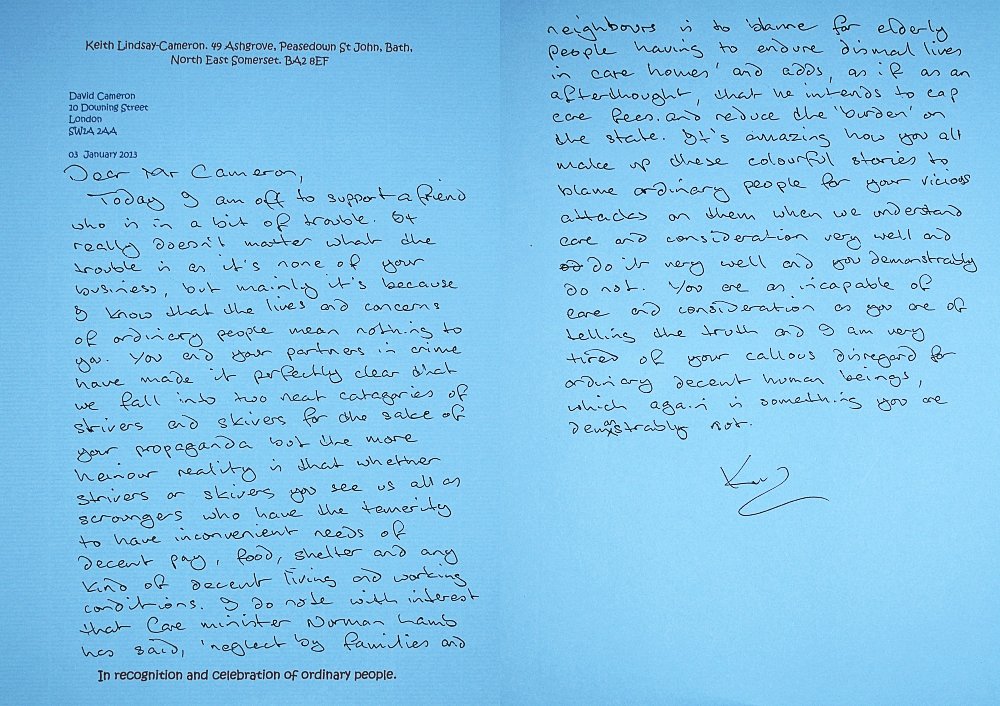 Keith Lindsay-Cameron. 49 Ashgrove, Peasedown St John, Bath,
North East Somerset. BA2 8EF
David Cameron
10 Downing Street
London
SW1A 2AA
03 January 2013
Dear Mr Cameron,
Today I am off to support a friend
who is in a bit of trouble. It
really doesn't matter what the
trouble is as it's none of your
business, but mainly it's because
I know that the lives and concerns
of ordinary people mean nothing to
you. You and your partners in crime
have made it perfectly clear that
we fall into two neat catagories of
strivers and skivers for the sake of
your propaganda but the more
heinour reality is that whether
strivers or skivers you see us all as
scroungers who have the temerity
to have inconvenient needs of
decent pay, food, shelter and any
kind of decent living and working
conditions. I do note with interest
that Care minister Norman Lamb
has said, 'neglect by families and
In recognition and celebration of ordinary people.
neighbours is to blame for elderly
people having to endure dismal lives
in care homes' and adds, as if as an
afterthought, that he intends to cap
care fees. and reduce the 'burden' on
the state. It's amazing how you all
make up these colourful stories to
blame ordinary people for your vicious
attacks on them when we understand
care and consideration very well and
do it very well and you demonstrably
do not. You are as incapable of
care and consideration as you are of
telling the truth and I am very
tired of your callous disregard for
ordinary decent human beings,
which again is something you are
demonstrably not.